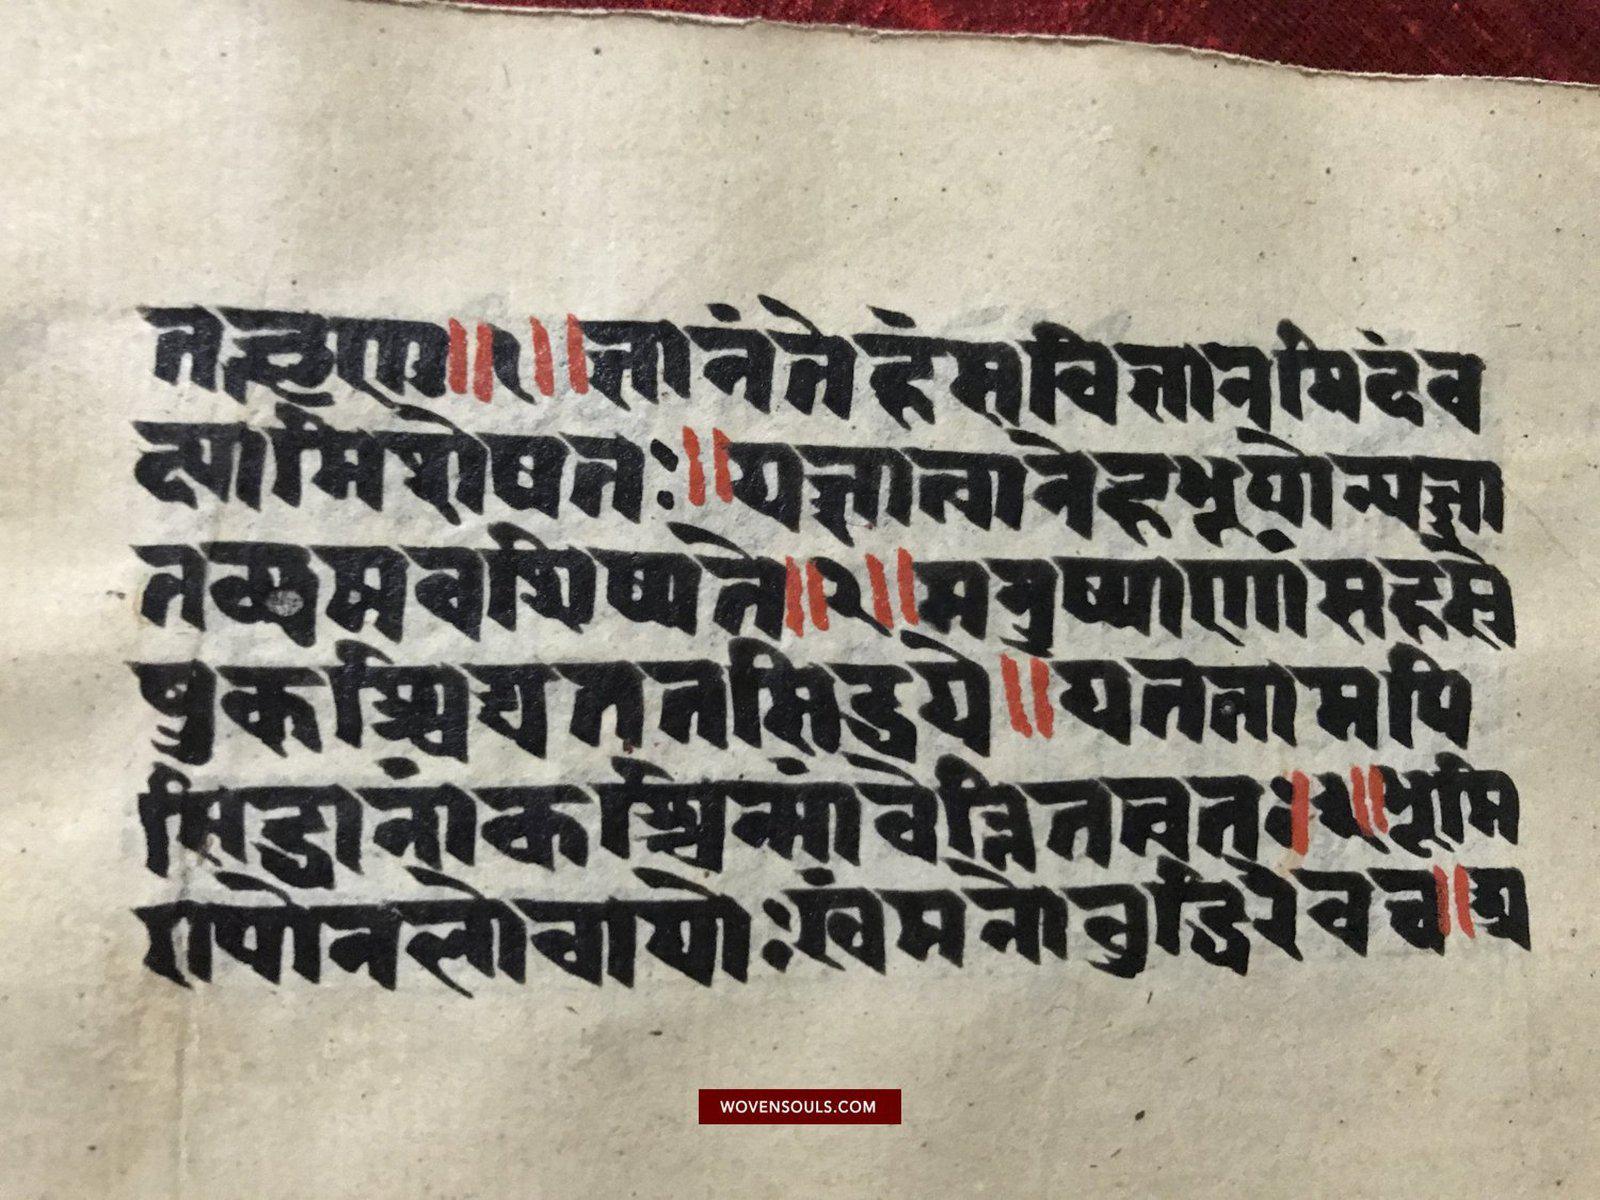 तच्छृणु॥१॥ज्ञानंतेहंसविज्ञानमिदंव
क्ष्याम्यशेषतः॥यज्ज्ञात्वानेहभूयोन्यज्ज्ञा
तव्यमवशिष्यते॥२॥मनुष्याणांसहस्रे
षुकश्चिद्यततिसिद्धये॥यततामपि
सिद्धानांकश्चिन्मांवेत्तितत्त्वतः॥३॥भूमि
रापोनलोवायोःखंमनोबुद्धिरेवच॥अ
WOVENSOULS.COM